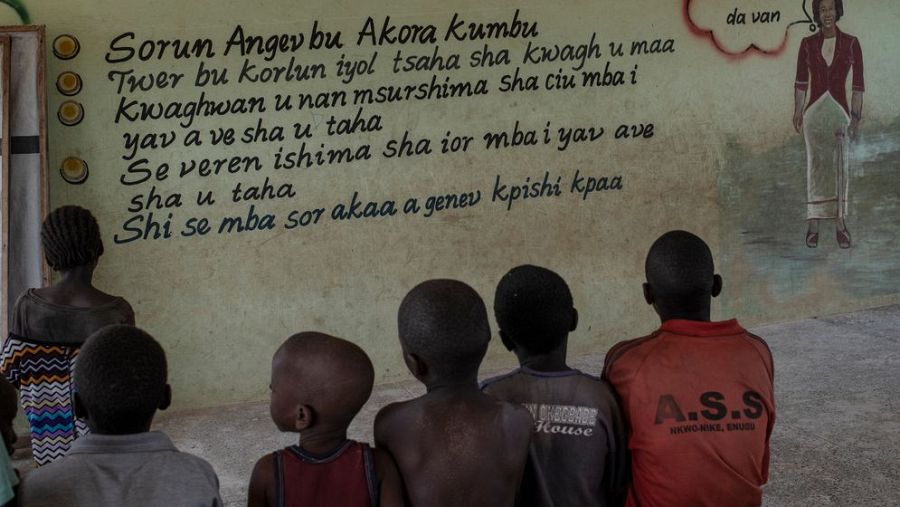 Sorun Angev bu Akora Kumbu
Twer bu korlun iyol tsaha sha kwagh u maa
Kwaghwan u nan msurshima sha ciu mba i
yav a ve sha u taha
Se veren ishima sha ior mba i yav ave
sha u taha
Shi se mba sor akaa a genev kpishi kpaa
da van
House
A.S.S
NKWO-NIKE, ENUGU